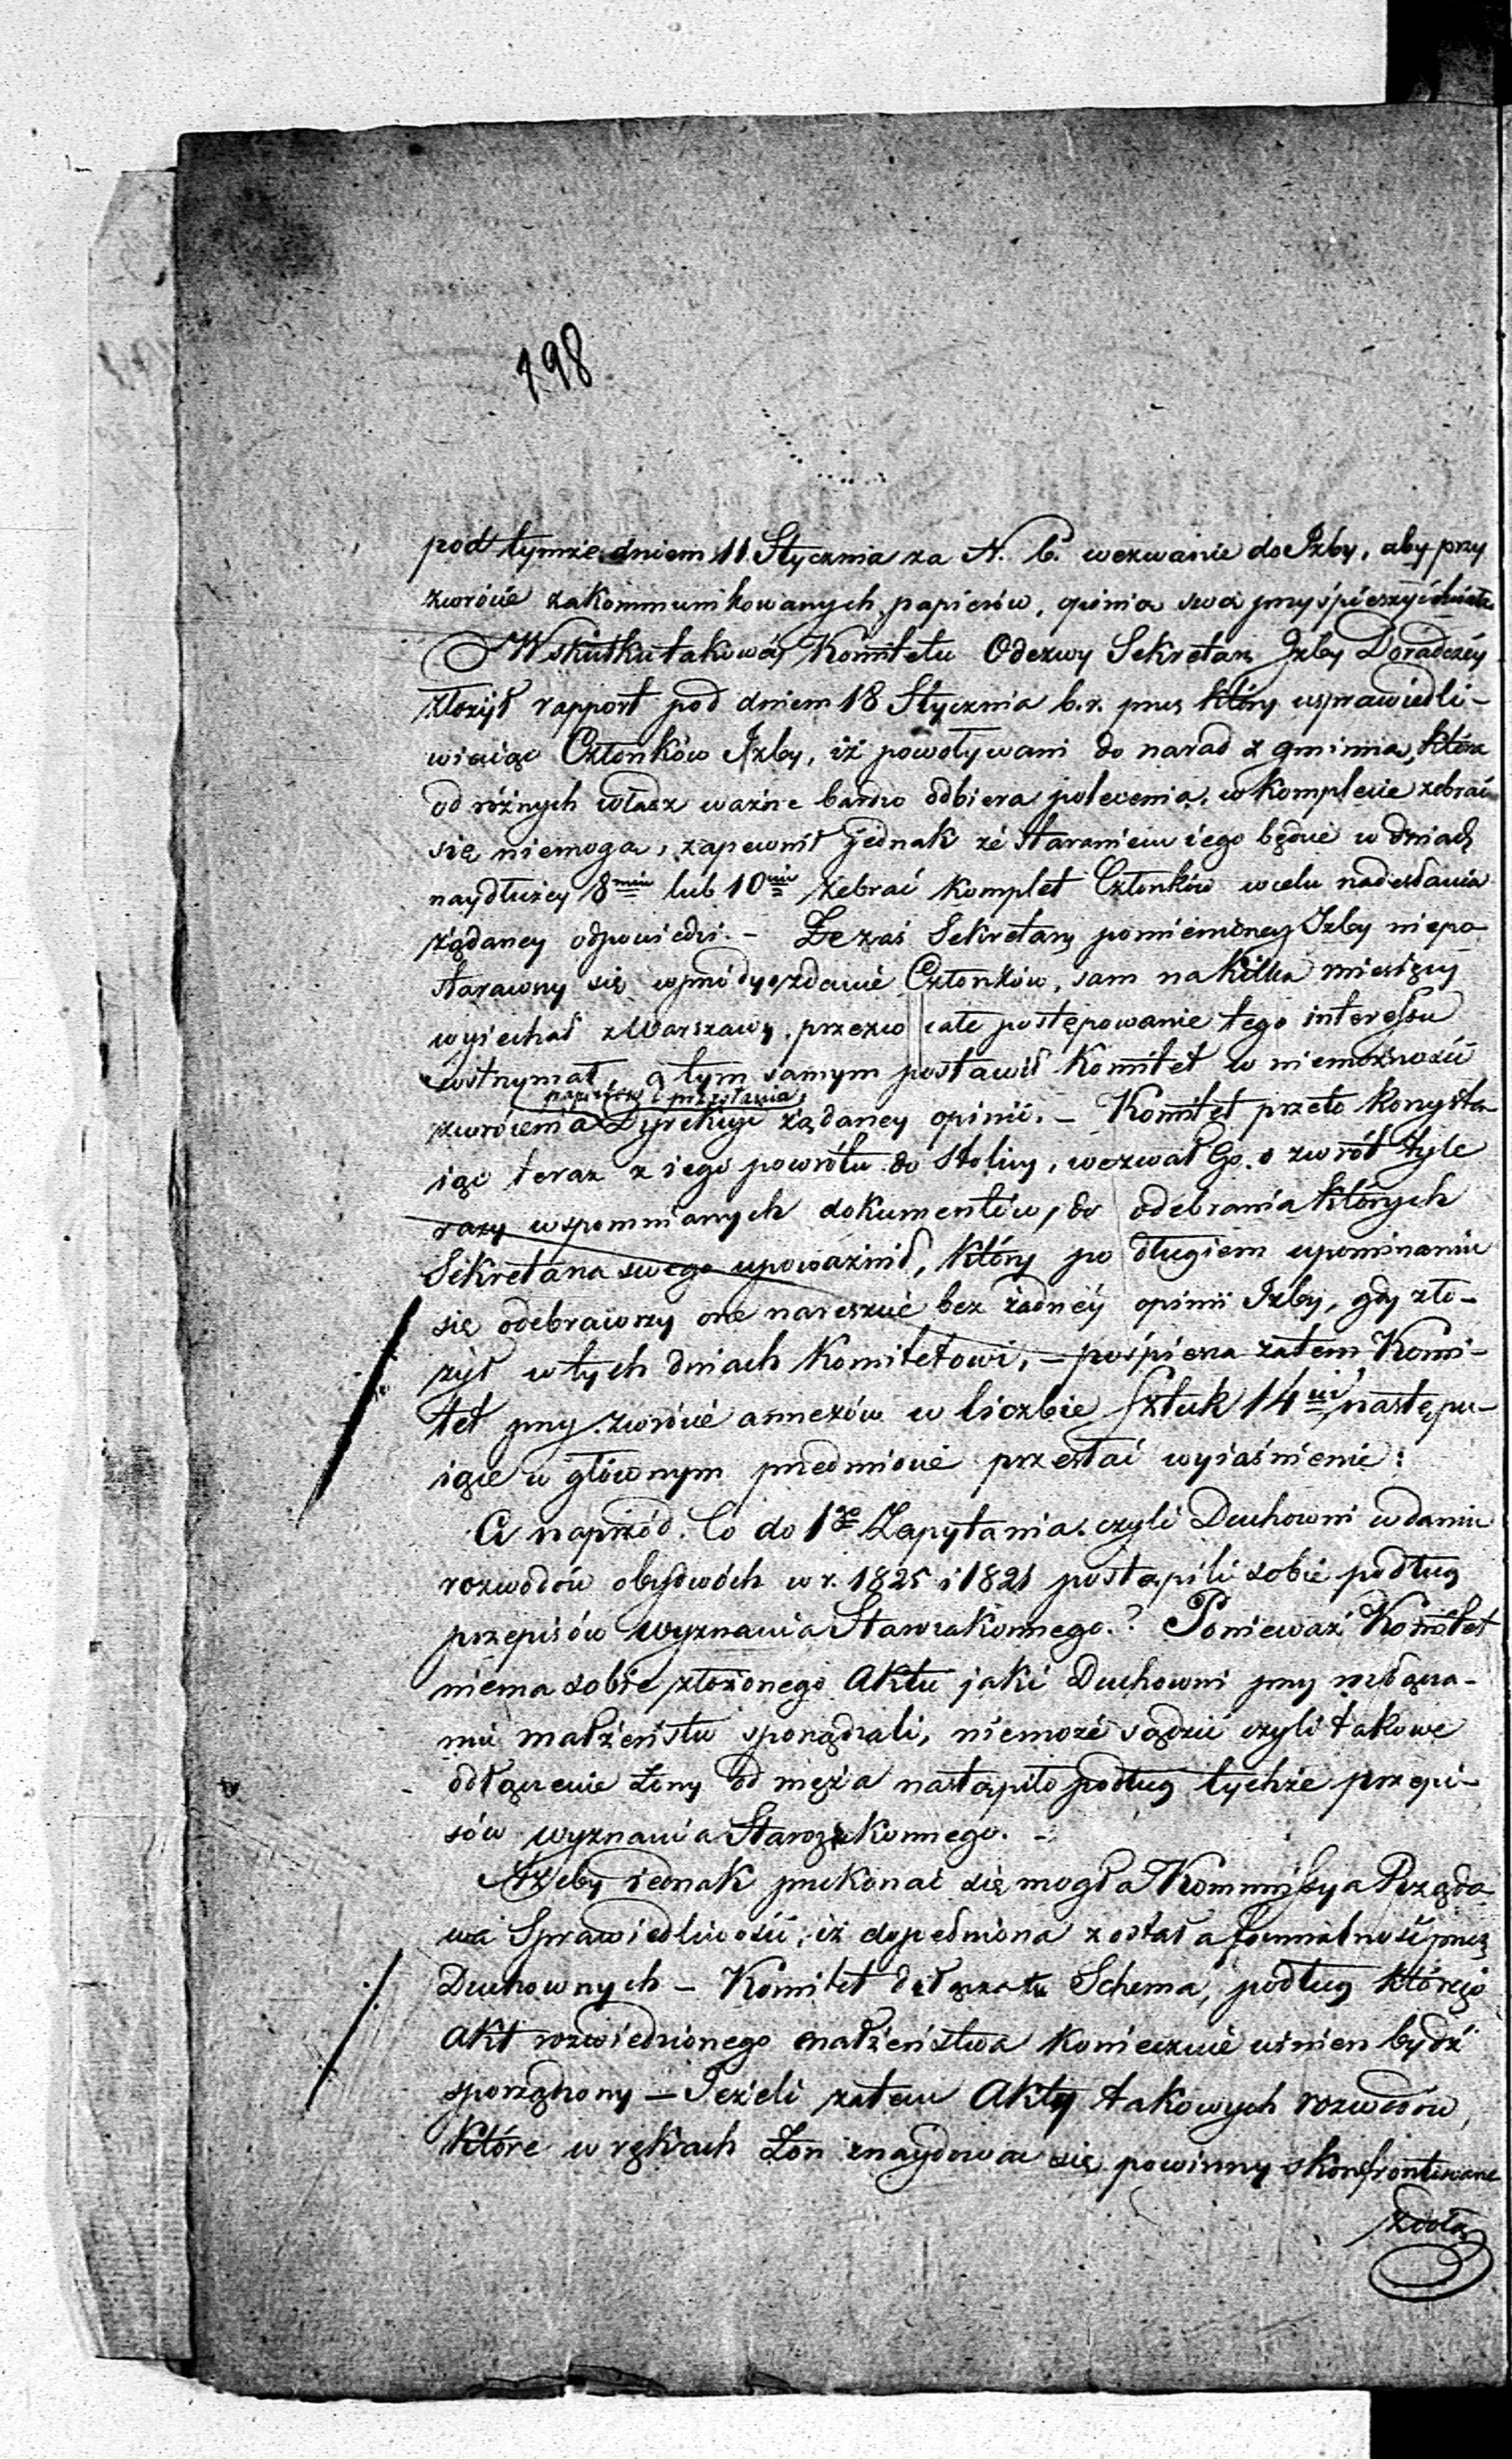 198
pod tymże dniem 11 Stycznia za N. 6. wezwanie do Izby, aby przy
zwrocie zakommunikowanych papierów, opinia swą przyśpieszyć chciała
W skutku takowéj Komitetu Odezwy Sekretarz Izby Doradczéy
złożył rapport pod dniem 18 Stycznia b.r. przez który usprawiedli-
wiaiąc Członków Izby, iż powoływani do narad z gminną, która
od różnych władz ważne bardzo odbiera polecenia, w komplecie zebrać
się niemogą, zapewnił jednak że staraniem iego będzie w dniach
naydłużey 8miu lub 10ciu zebrać komplet Członków w celu nadesłania
żądaney odpowiedzi. – Że zaś Sekretarz pomienioney Izby niepo-
starawszy się wprzódy o zdanie Członków, sam na kilka miesięcy
wyiechał z Warszawy, przez co całe postępowanie tego interessu
wstrzymał, a tym samym postawił Komitet w niemożności
papierów i przesłania
zwrócenia Dyrekcyi żądaney opinii. – Komitet przeto korzysta-
iąc teraz z iego powrotu do stolicy, wezwał Go o zwrót tyle
razy wspomnianych dokumentów, do odebrania których
Sekretarza swego upoważnił, który po długiem upominaniu
się odebrawszy one nareszcie bez żadnéy opinii Izby, gdy zło-
żył w tych dniach Komitetowi, – pośpiesza zatem Komi-
tet przy zwrócie annexów w liczbie sztuk 14ciu, następu-
iące w głównym przedmiocie przesłać wyiaśnienie:
A naprzód. Co do 1go Zapytania. czyli Duchowni w daniu
rozwodów obydwóch w r. 1825 i 1821 postąpili sobie podług
przepisów wyznania Starozakonnego? Ponieważ Komitet
niema sobie złożonego Aktu jaki Duchowni przy rozłącza-
niu małżeństw sporządzali, niemoże sądzić czyli takowe
odłączenie żony od męża nastąpiło podług tychże przepi-
sów wyznania Starozakonnego. –
Ażeby iednak przekonać się mogła Kommissya Rządo-
wa Sprawiedliwości, iż dopełniona została formalność przez
Duchownych – Komitet dołącza tu Schema, podług którego
Akt rozwiedzionego małżeństwa koniecznie winien bydź
sporządzony – Jeżeli zatem Akty takowych rozwodów,
które w rękach Żon znaydować się powinny skonfrontowane
zostaną